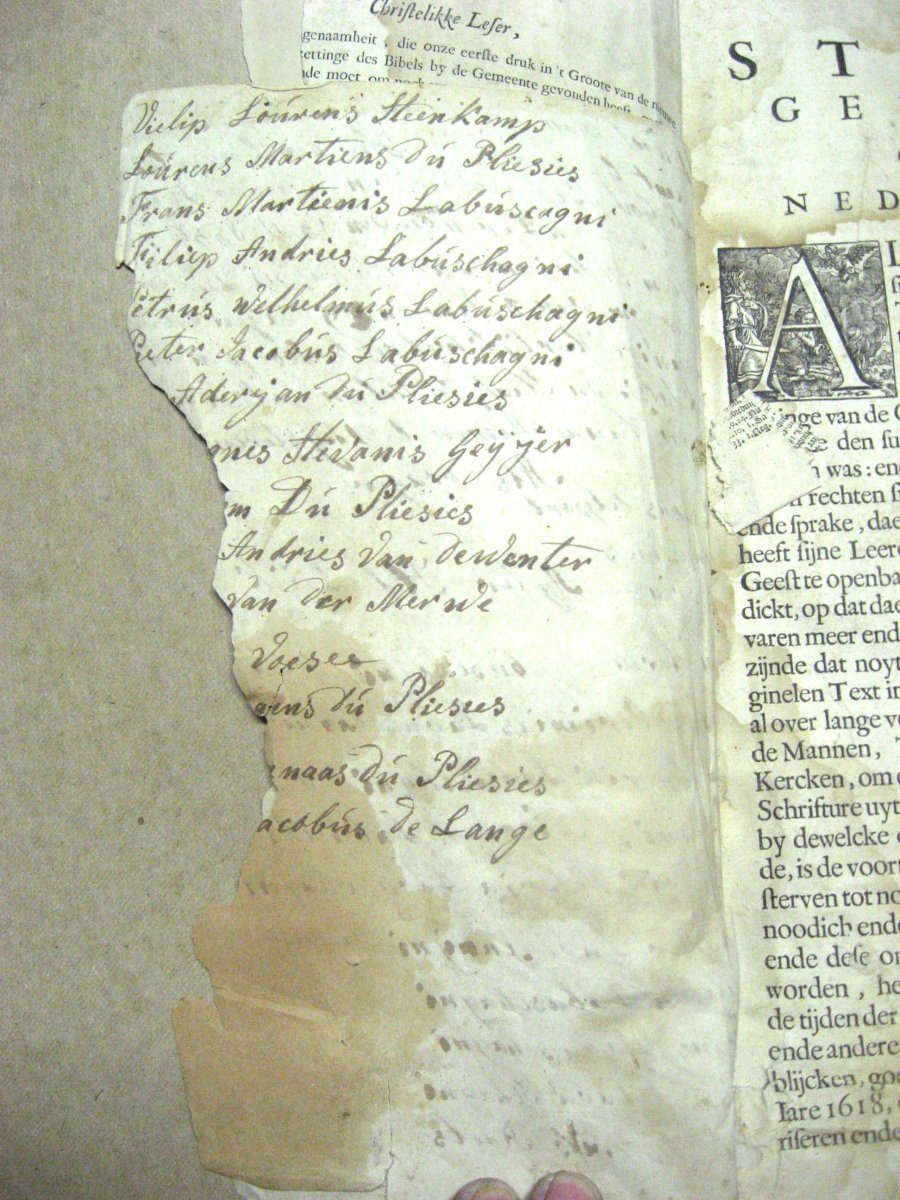 Christelikke Leser,
genaamheit, die onze eerste druk in 't Groote van de nieuwe
zettinge des Bibels by de Gemeente gevonden heeft
nde moet om noch
Vielip Loúrens Steenkamp
Loúrens Martiens dú Pliesies
Frans Martienis Labúscagni
Filiep Andries Labúschagni
Petrús Welhelmús Labúschagni
Pieter Jacobús Labúschagni
Aderjan dú Pliesies
nnes Stevanis Geÿjer
em Dú Pliesies
Andries van dewenter
van der Merwe
voesee
rens dú Pliesies
naas dú Pliesies
acobús de Lange
ST
GE
NED
A
inge van de
den su
n was: end
rechten
ende sprake, dae
heeft sijne Leere
Geest te openba
dickt, op dat dae
varen meer end
zijnde dat noyt
ginelen Text in
al over lange ve
de Mannen,
Kercken, om
Schrifture uyt
by dewelcke
de, is de voort
sterven tot no
noodich ende
ende dese on
worden, he
de tijden der
ende andere
blijcken, goe
Iare 1618,
riseren ende